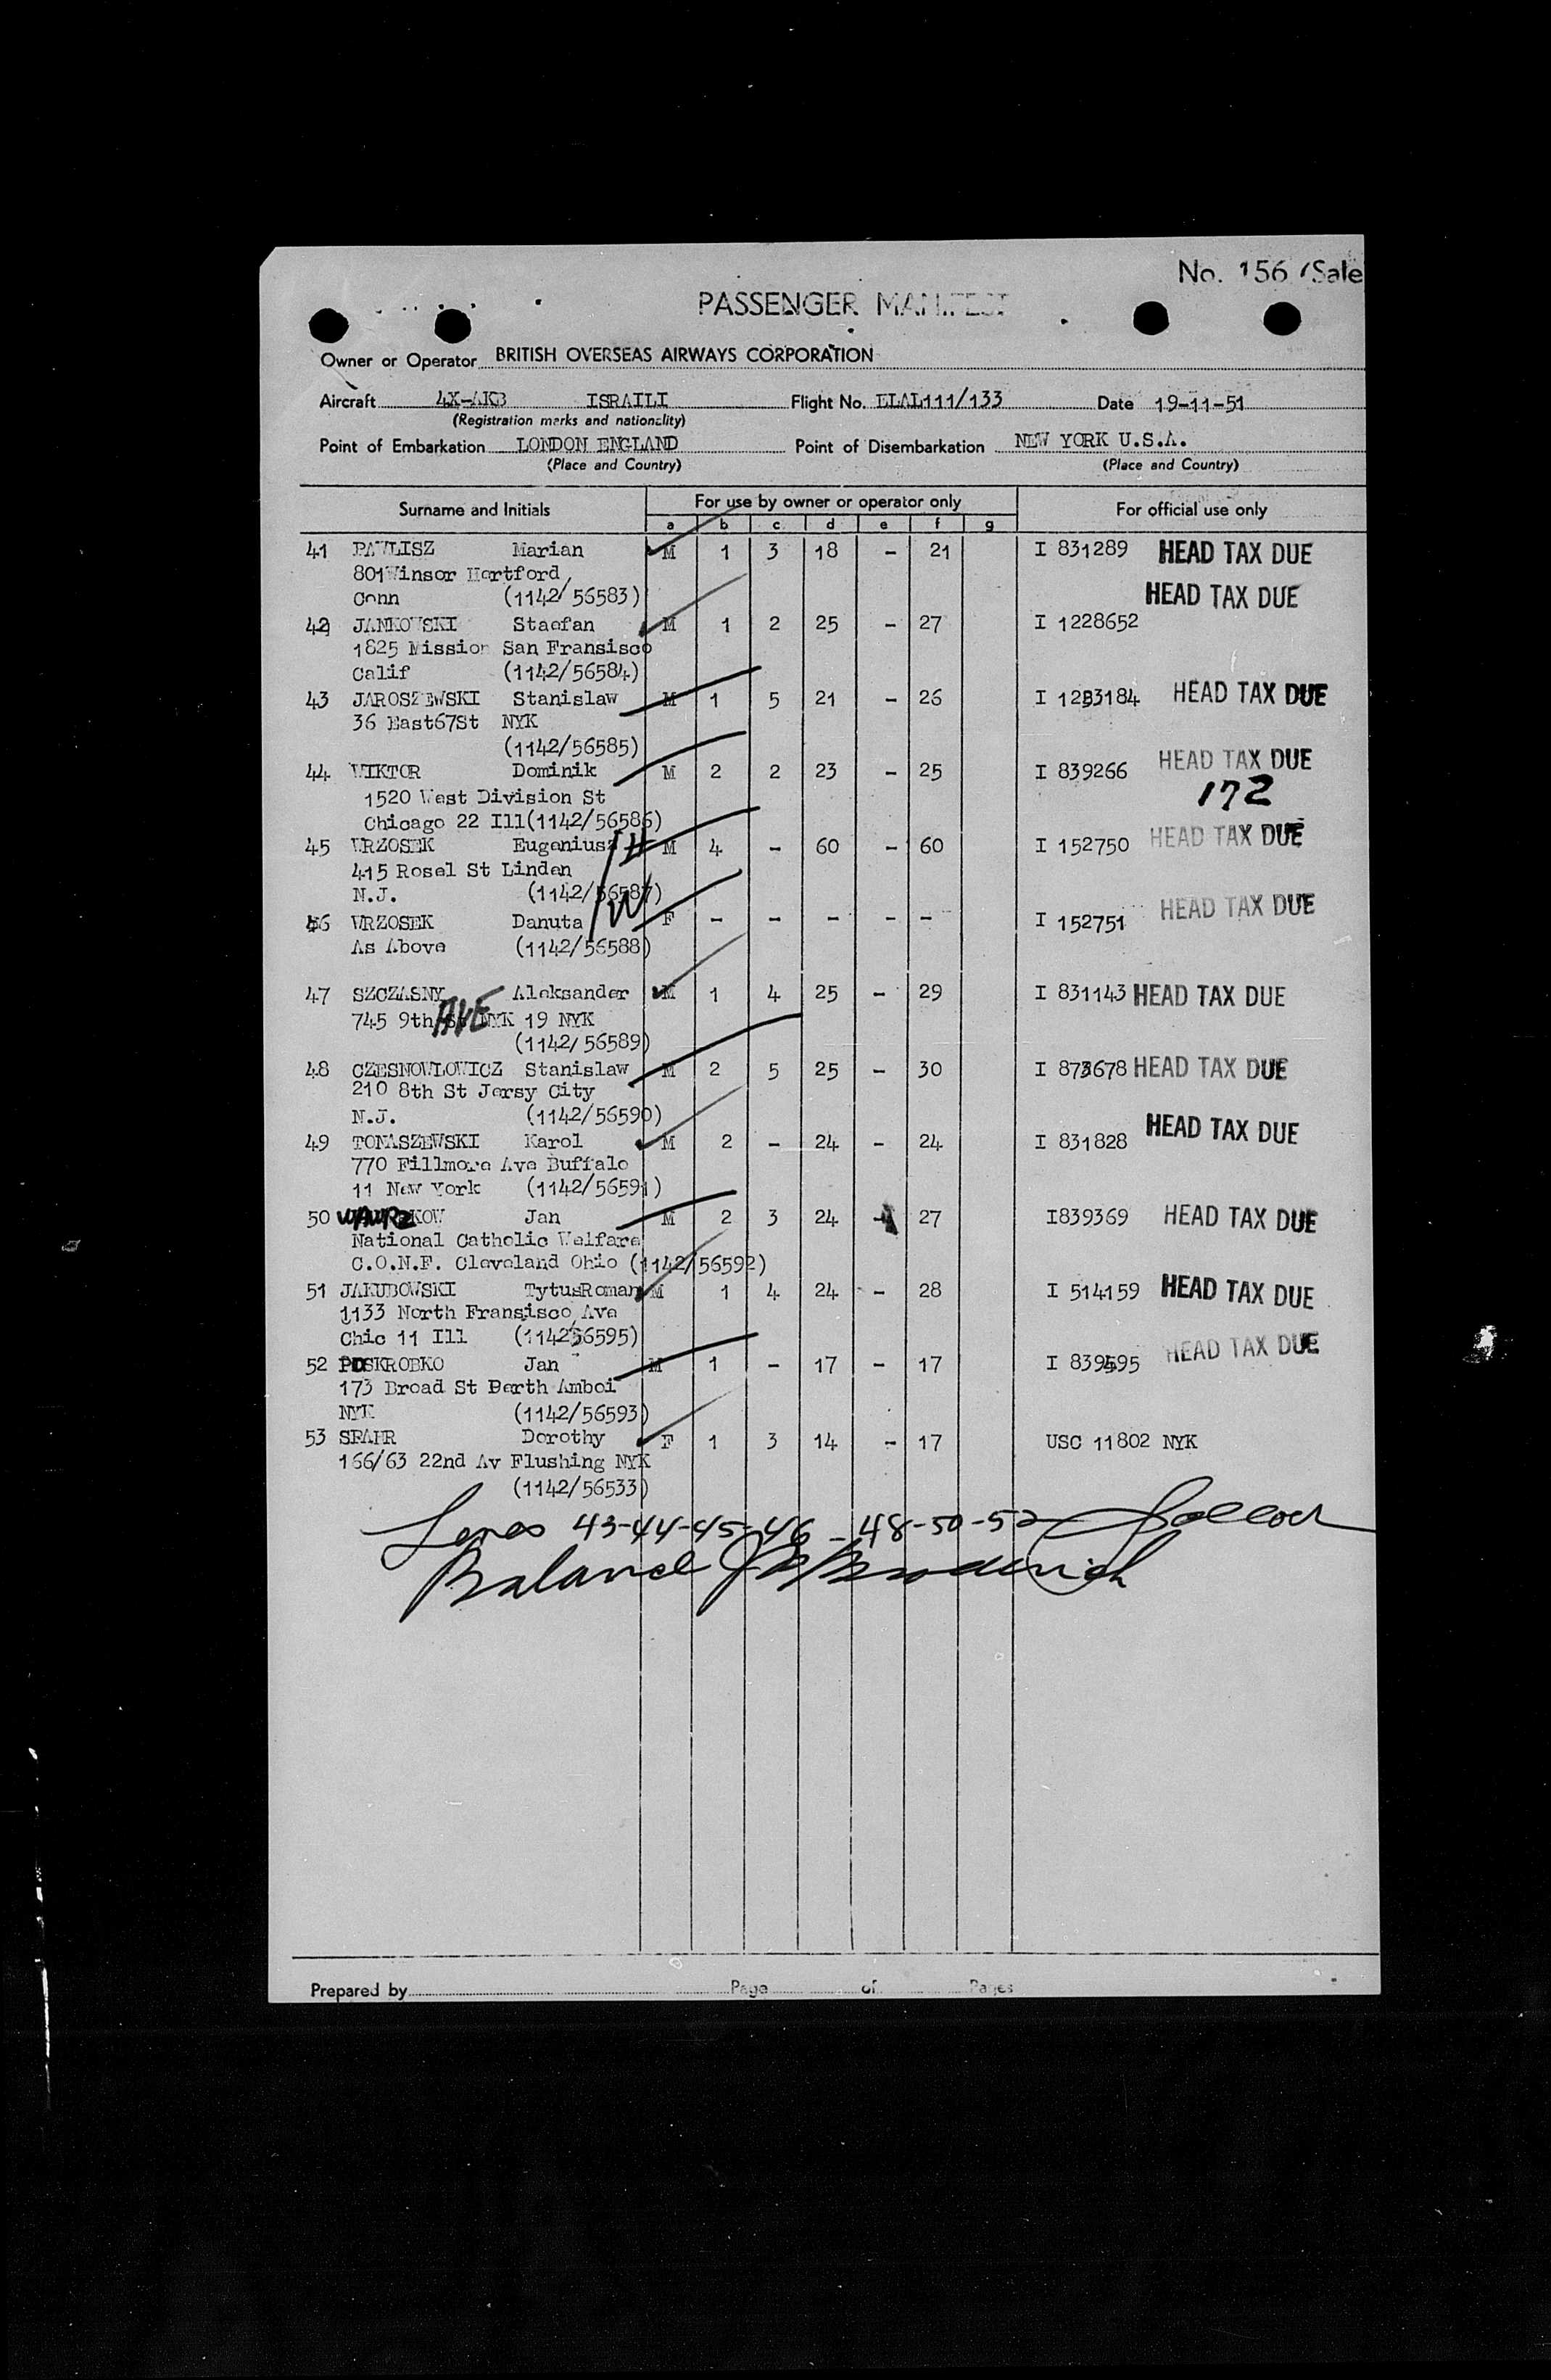 No. 156 (Sale
PASSENGER MANIFEST
Owner or Operator BRITISH OVERSEAS AIRWAYS CORPORATION
Aircraft 4X-AKB ISRAILI Flight No. ELAL111/133 Date 19-11-51
(Registration marks and nationality)
Point of Embarkation LONDON ENGLAND Point of Disembarkation NEW YORK U.S.A.
(Place and Country) (Place and Country)
Surname and Initials For use by owner or operator only For official use only
a b c d e f g
41 PAWLISZ Marian M 1 3 18 - 21 I 831289 HEAD TAX DUE
801Winsor Hartford
Conn (1142/56583) HEAD TAX DUE
42 JANKOWSKI Staefan M 1 2 25 - 27 I 1228652
1825 Mission San Fransisco
Calif (1142/56584)
43 JAROSZEWSKI Stanislaw M 1 5 21 - 26 I 1233184 HEAD TAX DUE
36 East67St NYK
(1142/56585)
44 WIKTOR Dominik M 2 2 23 - 25 I 839266 HEAD TAX DUE
1520 West Division St 172
Chicago 22 Ill(1142/56586)
45 WRZOSEK Eugeniusz H M 4 - 60 - 60 I 152750 HEAD TAX DUE
415 Rosel St Linden
N.J. (1142/56587)
46 WRZOSEK Danuta W F - - - - - I 152751 HEAD TAX DUE
As Above (1142/56588)
47 SZCZASNY Aleksander M 1 4 25 - 29 I 831143 HEAD TAX DUE
745 9th AVE NYK 19 NYK
(1142/56589)
48 CZESNOWLOWICZ Stanislaw M 2 5 25 - 30 I 873678 HEAD TAX DUE
210 8th St Jersy City
N.J. (1142/56590)
49 TOMASZEWSKI Karol M 2 - 24 - 24 I 831828 HEAD TAX DUE
770 Fillmore Ave Buffalo
11 New York (1142/56591)
50 WAWRZKOW Jan M 2 3 24 - 27 I839369 HEAD TAX DUE
National Catholic Welfare
C.O.N.F. Cleveland Ohio (1142/56592)
51 JAKUBOWSKI TytusRoman M 1 4 24 - 28 I 514159 HEAD TAX DUE
1133 North Fransisco Ave
Chic 11 Ill (1142/56595)
52 POSKROBKO Jan M 1 - 17 - 17 I 839595 HEAD TAX DUE
173 Broad St Perth Amboi
NYK (1142/56593)
53 SPAHR Dorothy F 1 3 14 - 17 USC 11802 NYK
166/63 22nd Av Flushing NYK
(1142/56533)
Lines 43-44-45-46-48-50-52
Balance Broderick
Prepared by Page of Pages